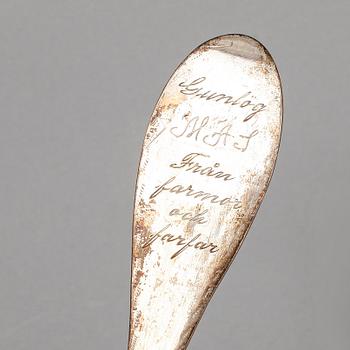 Gunlög
MAS
Från
farmor
och
farfar